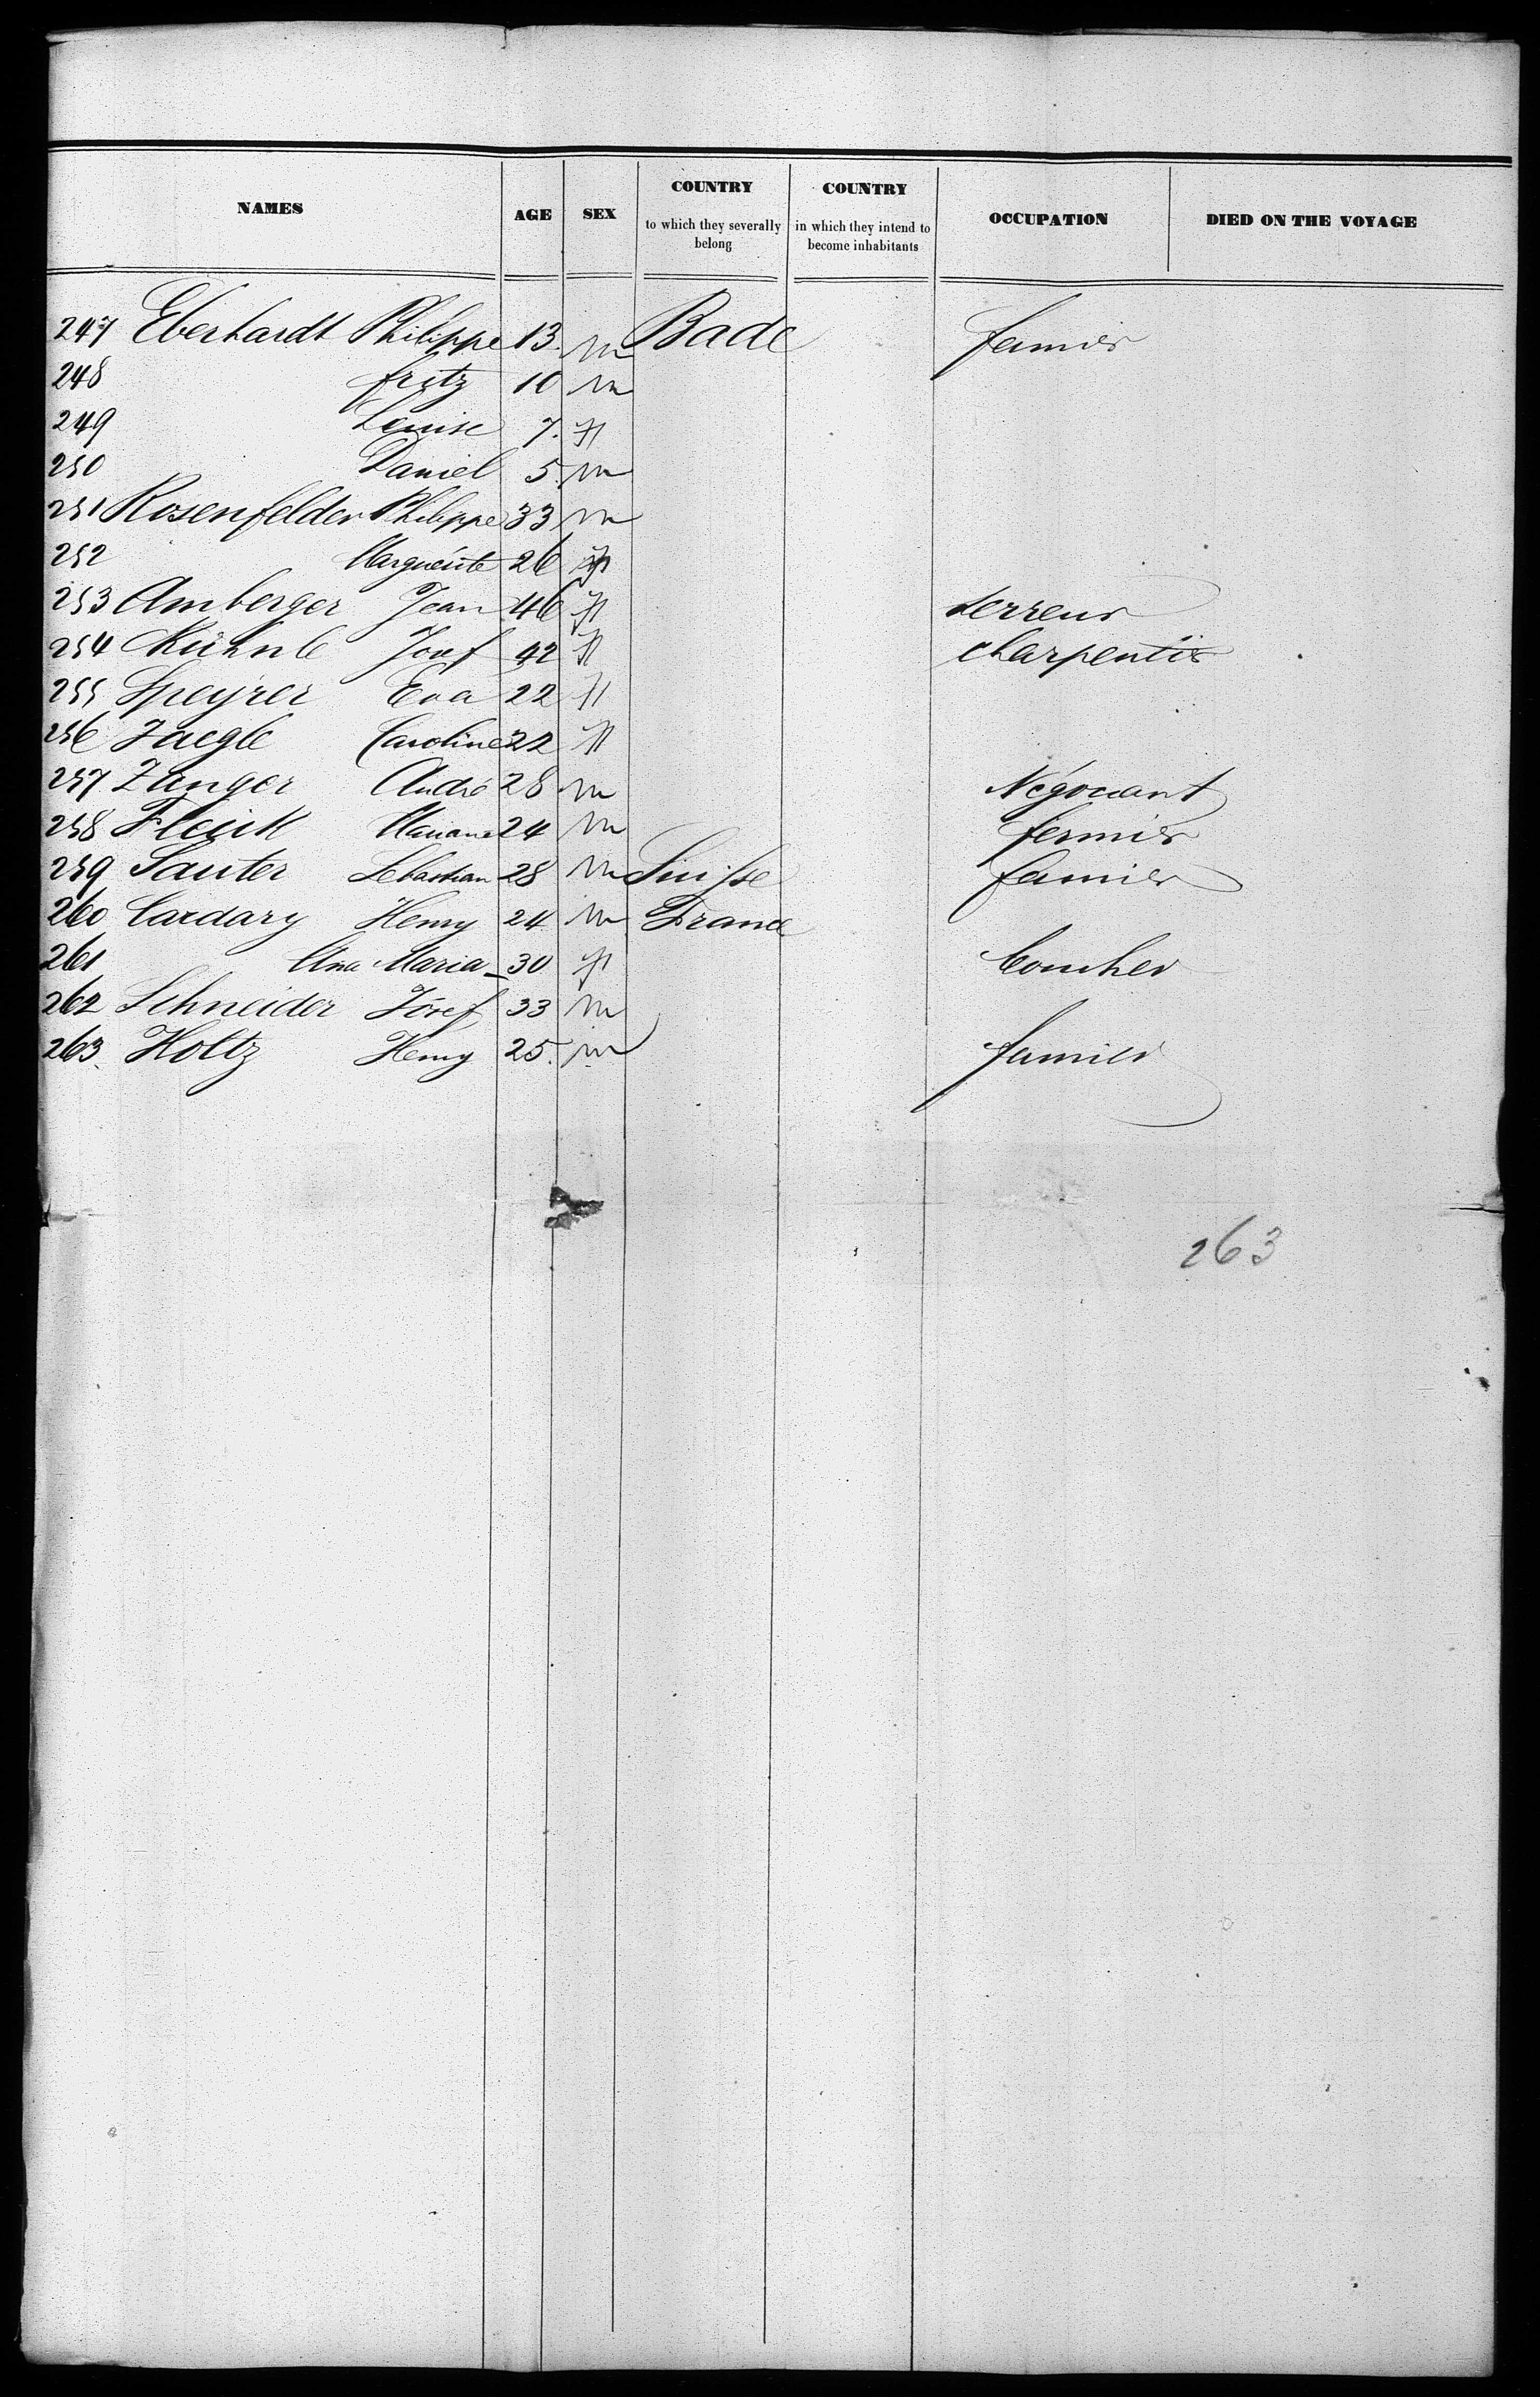 NAMES AGE SEX COUNTRY to which they severally belong COUNTRY in which they intend to become inhabitants OCCUPATION DIED ON THE VOYAGE
247 Eberhardt Philippe 13. m Bade fermier
248 fritz 10 m
249 Louise 7. f
250 Daniel 5. m
251 Rosenfelder Philippe 33 m
252 Marguerite 26 f
253 Amberger Jean 46 f serreur
254 Kühnle Josef 42 f charpentier
255 Speyrer Eva 22 f
256 Jaegle Caroline 22 f
257 Zanger André 28 m Négociant
258 Fleick Mariana 24 m fermier
259 Sauter Sebastian 28 m Suisse fermier
260 Cardary Henry 24 m France
261 Ana Maria 30 f boucher
262 Schneider Josef 33 m
263. Holtz Henry 25. m fermier
263